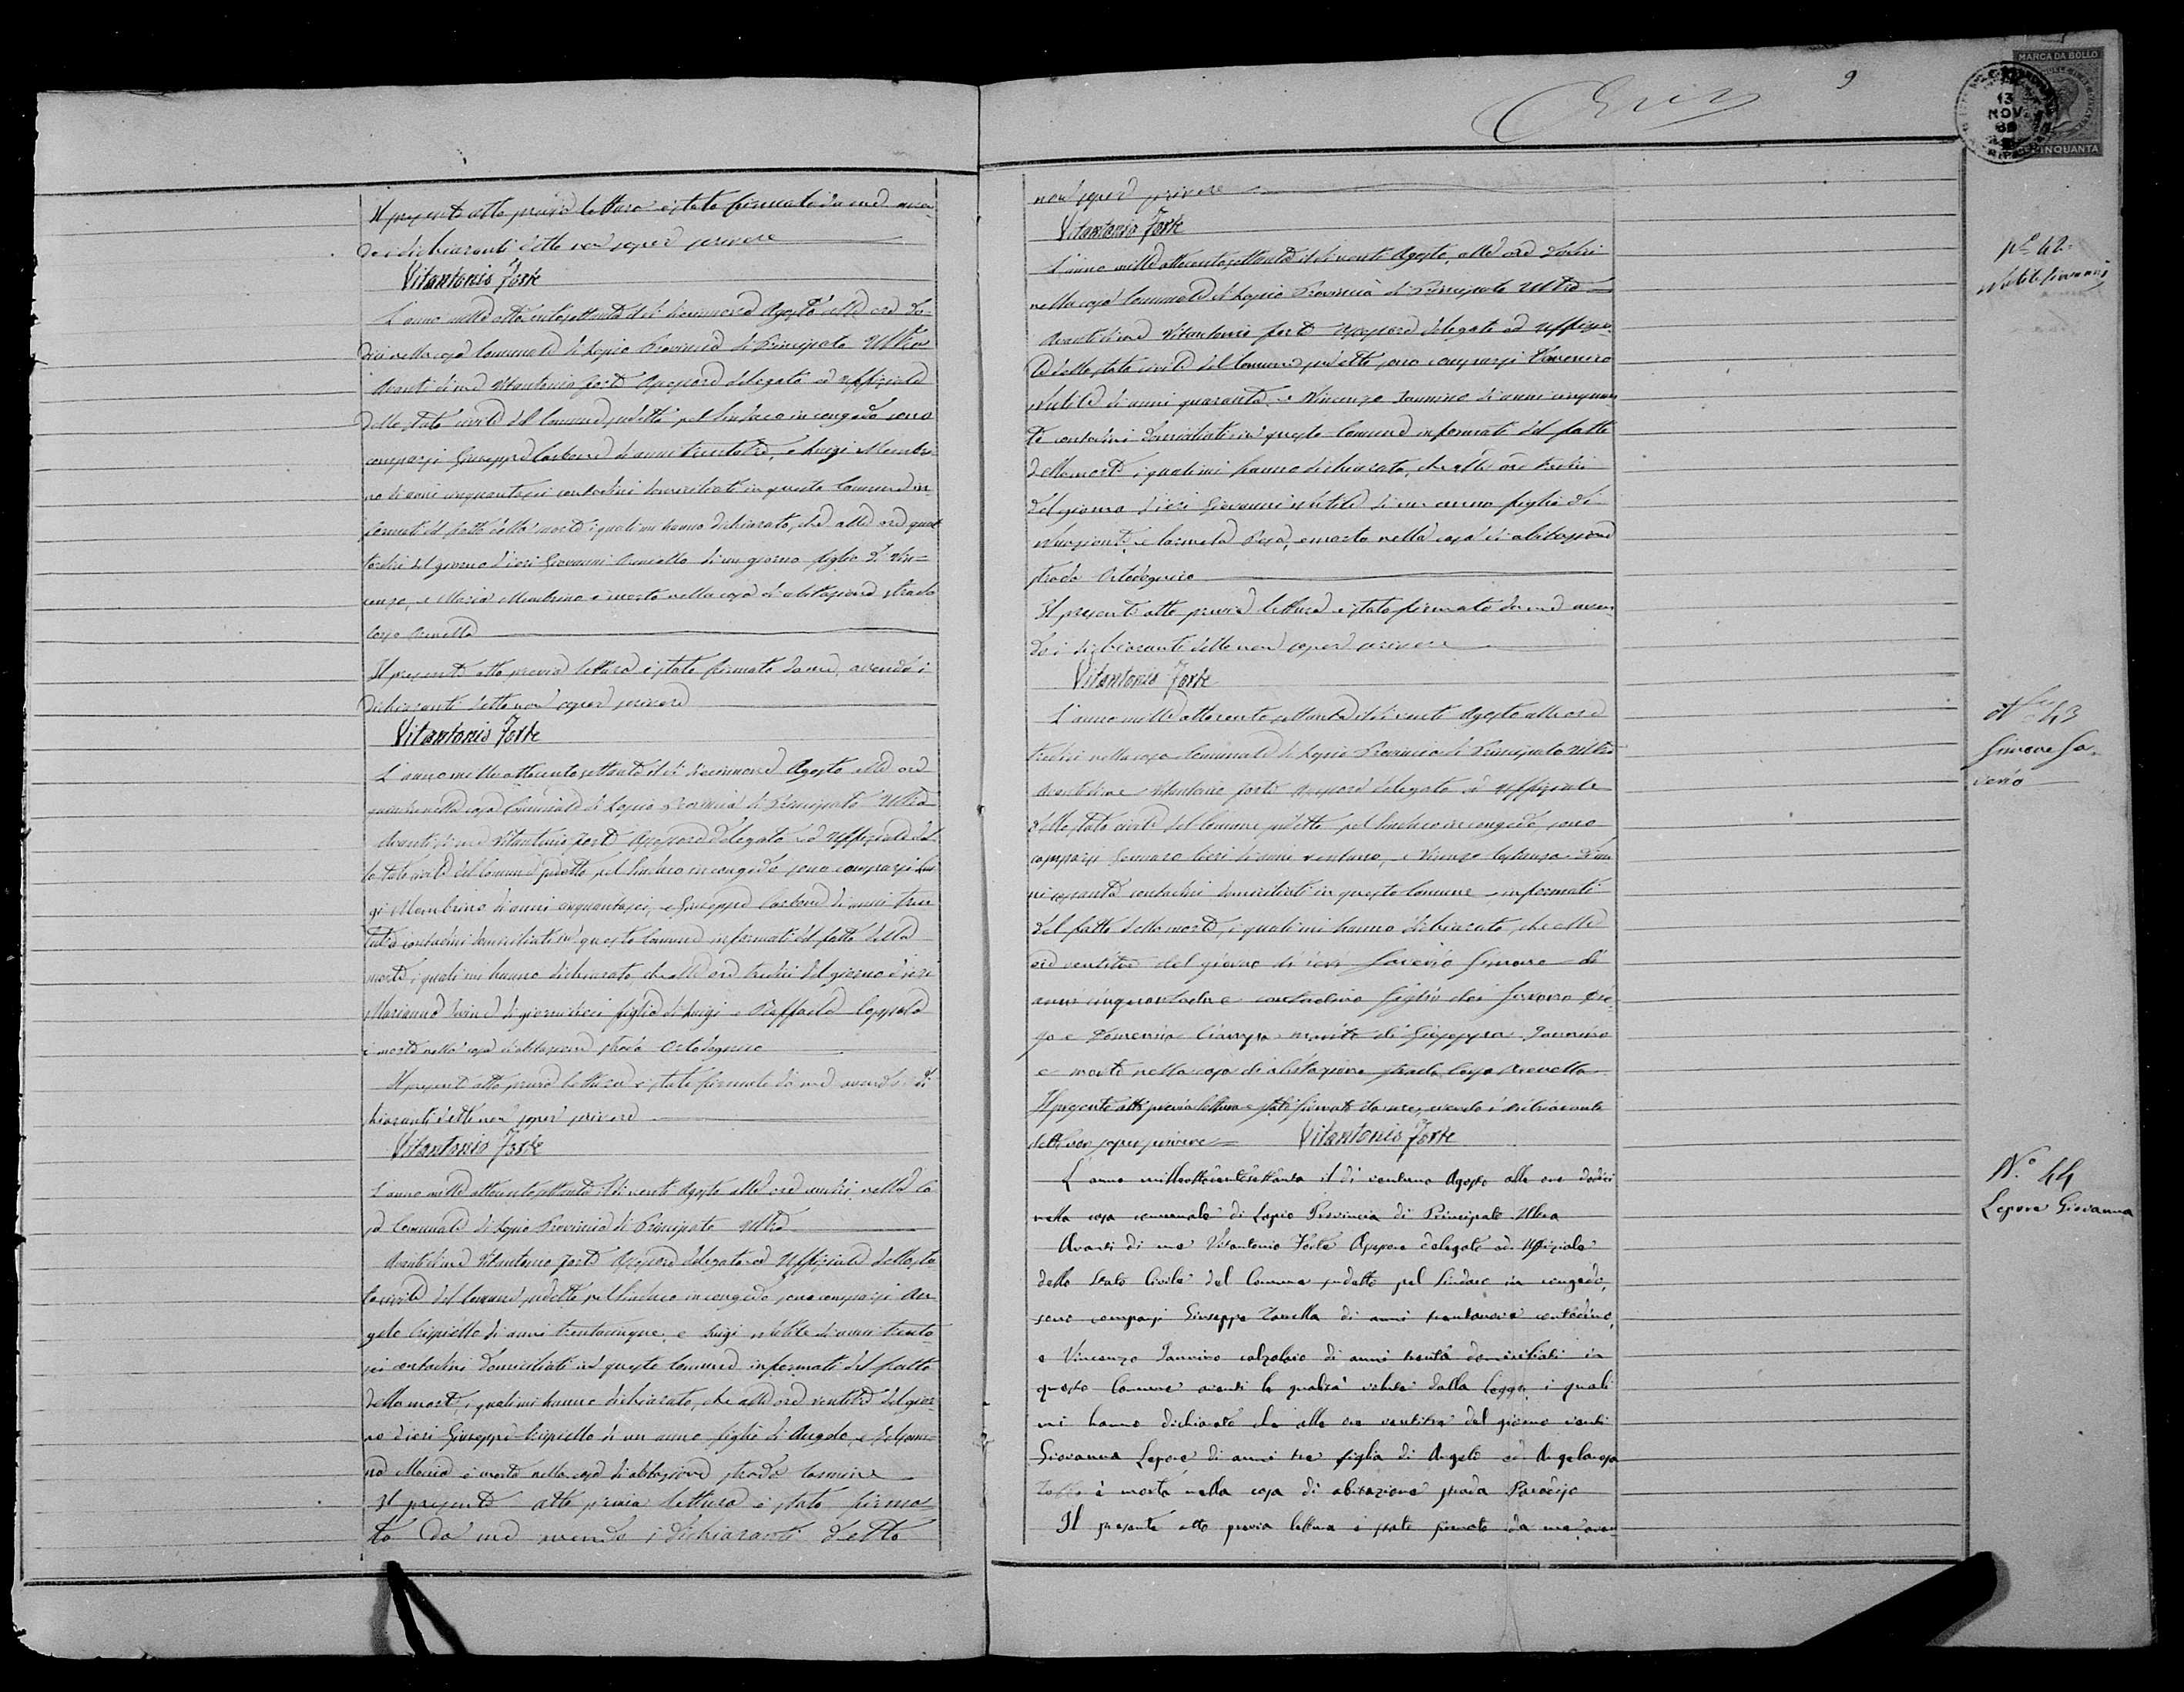 Il presente atto previa lettura è stato firmato da me aven
do i dichiaranti detto non saper scrivere
Vitantonio Forte
L'anno mille ottocentosettanta il dì diciannove Agosto alle ore do
dici nella casa Comunale di Lapio Provincia di Principato Ultra
Avanti di me Vitantonio Forte Assessore delegato ad Uffiziale
dello stato civile del Comune sudetto pel Sindaco in congedo sono
comparsi Giuseppe Carbone di anni trentatre, e Luigi Membri
no di anni cinquantasei contadini domiciliati in questo Comune in
formati del fatto della morte i quali mi hanno dichiarato, che alle ore quat
tordici del giorno di ieri Giovanni di un giorno figlio di Vin=
cenzo, e Maria Membrino è morto nella casa di abitazione strada
Il presente atto previa lettura è stato firmato da me, avendo i
dichiaranti detto non saper scrivere
Vitantonio Forte
L'anno mille ottocento settanta il dì diciannove Agosto alle ore
nella casa Comunale di Lapio Provincia di Principato Ultra
Avanti di me Vitantonio Forte Assessore delegato ad Uffiziale del
lo stato civile del Comune sudetto pel Sindaco in congedo sono comparsi Lui
gi Membrino di anni cinquantasei, e Giuseppe Carbone di anni tren
tatre contadini domiciliati in questo Comune informati del fatto della
morte, i quali mi hanno dichiarato, che alle ore tredici del giorno di ieri
Marianna di giorni dieci figlia di Luigi e Raffaela Coppola
è morta nella casa di abitazione strada
Il presente atto previa lettura è stato firmato da me avendo i di
chiaranti detto non saper scrivere
Vitantonio Forte
L'anno mille ottocento settanta il dì venti Agosto alle ore undici nella ca
sa Comunale di Lapio Provincia di Principato Ultra
Avanti di me Vitantonio Forte Assessore delegato ad Uffiziale dello sta
to civile del Comune sudetto pel Sindaco in congedo sono comparsi An
gelo di anni trentacinque, e Luigi di anni trenta
sei contadini domiciliati in questo Comune informati del fatto
della morte, i quali mi hanno dichiarato, che alle ore ventitre del gior
no di ieri Giuseppe di un anno figlio di Angelo, e
Maria è morto nella casa di abitazione strada Carmine
Il presente atto previa lettura è stato firma
to da me avendo i dichiaranti detto
9
MARCA DA BOLLO
13
NOV
CINQUANTA
non saper scrivere
Vitantonio Forte
L'anno mille ottocentosettanta il dì venti Agosto, alle ore dodici
nella casa Comunale di Lapio Provincia di Principato Ultra
Avanti di me Vitantonio Forte Assessore delegato ad Uffizia
le dello stato civile del Comune sudetto sono comparsi
di anni quaranta, e Vincenzo Iannino di anni cinquan
ta contadini domiciliati in questo Comune informati del fatto
della morte, i quali mi hanno dichiarato, che alle ore tredici
del giorno di ieri Giovanni di un anno figlio di
e Carmela Rosa, è morto nella casa di abitazione
strada
Il presente atto previa lettura è stato firmato da me aven
do i dichiaranti detto non saper scrivere
Vitantonio Forte
L'anno mille ottocento settanta il dì venti Agosto alle ore
tredici nella casa Comunale di Lapio Provincia di Principato Ultra
Avanti di me Vitantonio Forte Assessore delegato ad Uffiziale
dello stato civile del Comune sudetto pel Sindaco in congedo sono
comparsi Gennaro di anni ventuno, e Vincenzo di an
ni contadini domiciliati in questo Comune informati
del fatto della morte, i quali mi hanno dichiarato, che alle
ore ventitre del giorno di ieri Saverio Simone di
anni cinquantadue contadino figlio dei
e marito di Giuseppa Iannino
è morto nella casa di abitazione strada
Il presente atto previa lettura è stato firmato da me, avendo i dichiaranti
detto non saper scrivere Vitantonio Forte
L'anno milleottocentosettanta il dì ventuno Agosto alle ore dodici
nella casa comunale di Lapio Provincia di Principato Ultra
Avanti di me Vitantonio Forte Assessore delegato ad Uffiziale
dello Stato Civile del Comune sudetto pel Sindaco in congedo,
sono comparsi Giuseppe Zanella di anni trentanove contadino,
e Vincenzo Iannino calzolaio di anni trenta domiciliati in
questo Comune aventi le qualità volute dalla Legge, i quali
mi hanno dichiarato che alle ore ventitre del giorno venti
Giovanna Lepore di anni tre figlia di Angelo ed Angelarosa
è morta nella casa di abitazione strada Paradiso
Il presente atto previa lettura è stato firmato da me aven
No 42
Giovanni
No 43
Simone Sa=
verio
No 44
Lepore Giovanna